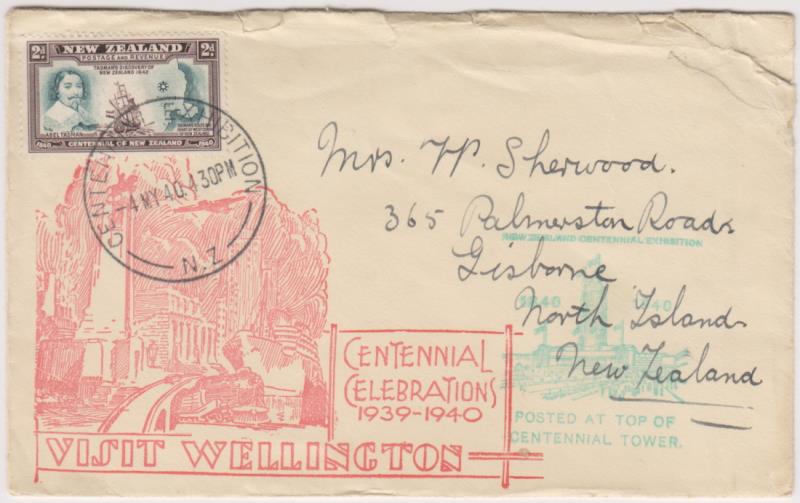 2d. NEW ZEALAND 2d
POSTAGE AND REVENUE
TASMAN'S DISCOVERY OF
NEW ZEALAND 1642
ABEL TASMAN
1840 CENTENNIAL OF NEW ZEALAND 1940
CENTENNIAL EXHIBITION
-4 MY 40. 430PM
N.Z
Mrs. W. Sherwood.
365 Palmerston Road
Gisborne
North Island
New Zealand
NEW ZEALAND CENTENNIAL EXHIBITION
1840 1940
POSTED AT TOP OF
CENTENNIAL TOWER.
CENTENNIAL
CELEBRATIONS
1939-1940
VISIT WELLINGTON